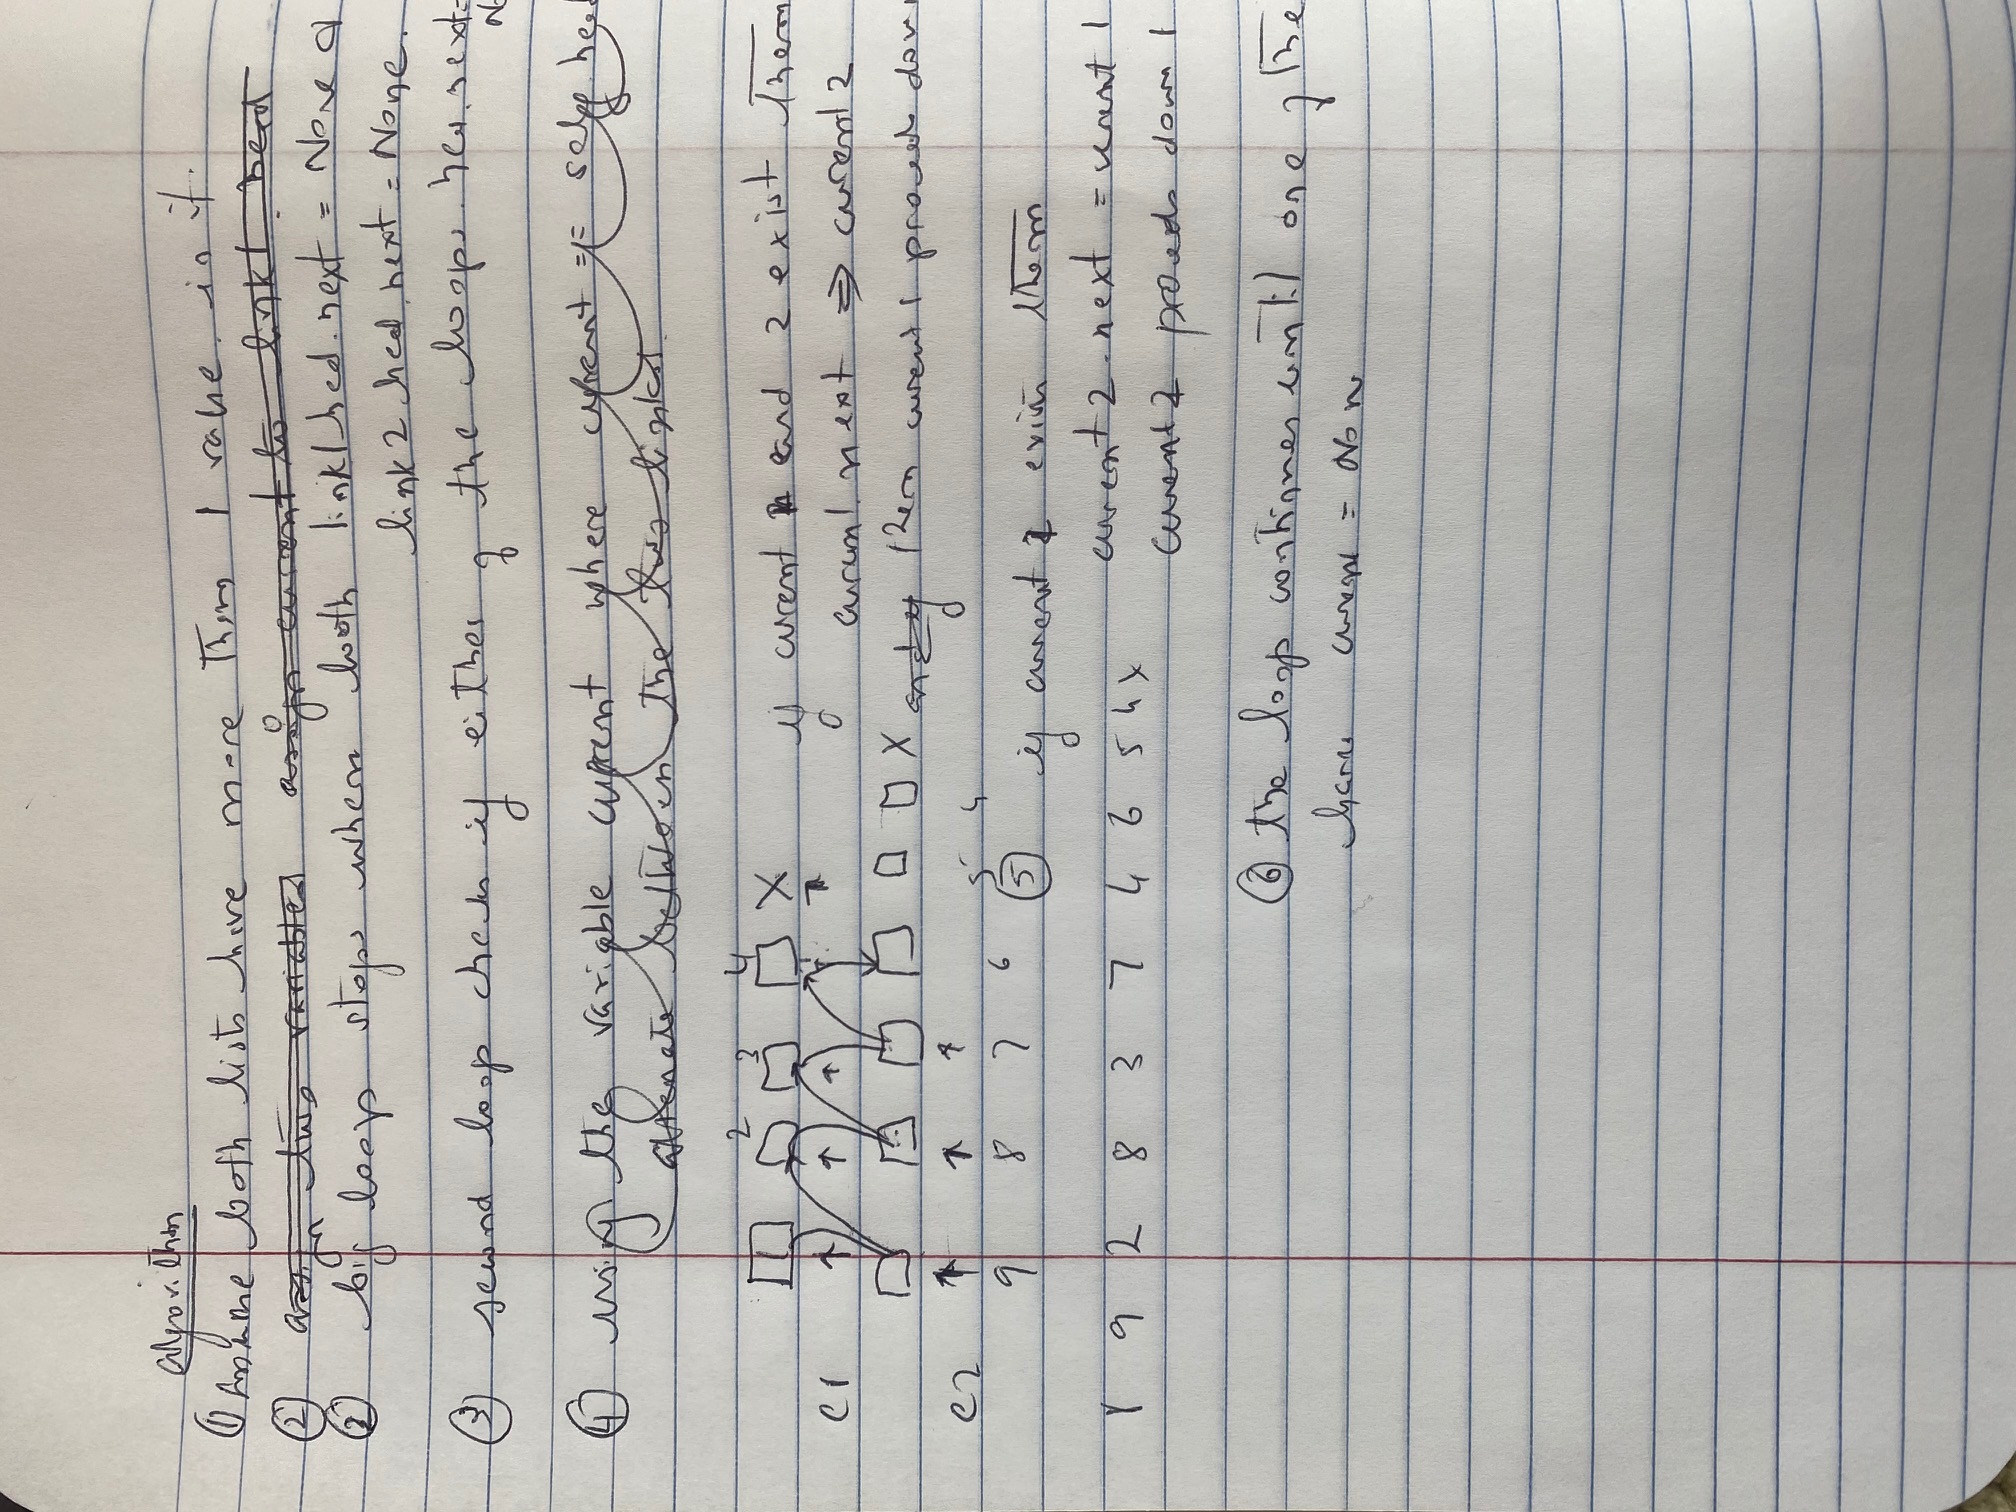 algorithm
① Assume both lists have more than 1 value in it.
② assign two variables assign current to link1. head
② big loop stops when both link1 hed.next = None &
link 2 hed.next = None.
③ second loop checks if either of the loops. hed.next=
No
④ using the variable current where current = self.hea
alternate between the two links.
2 3 4
1 X if curent and 2 exist then
C1 curent1.next ⇒ curent 2
X then curent 1 proceeds down
C2 5 4
9 8 7 6 ⑤ if curent 2 exist then
1 9 2 8 3 7 4 6 5 4 x curent 2.next = curent 1
curent 2 proceeds down 1
⑥ the loop continues until one of the
have curent = Non